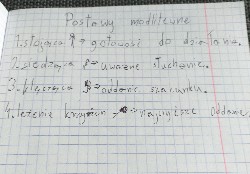 Postawy modlitewne
1. stojąca → gotowość do działania.
2. siedząca → uważne słuchanie.
3. klęcząca → oddanie szacunku.
4. leżenie krzyżem → najwyższe oddanie.